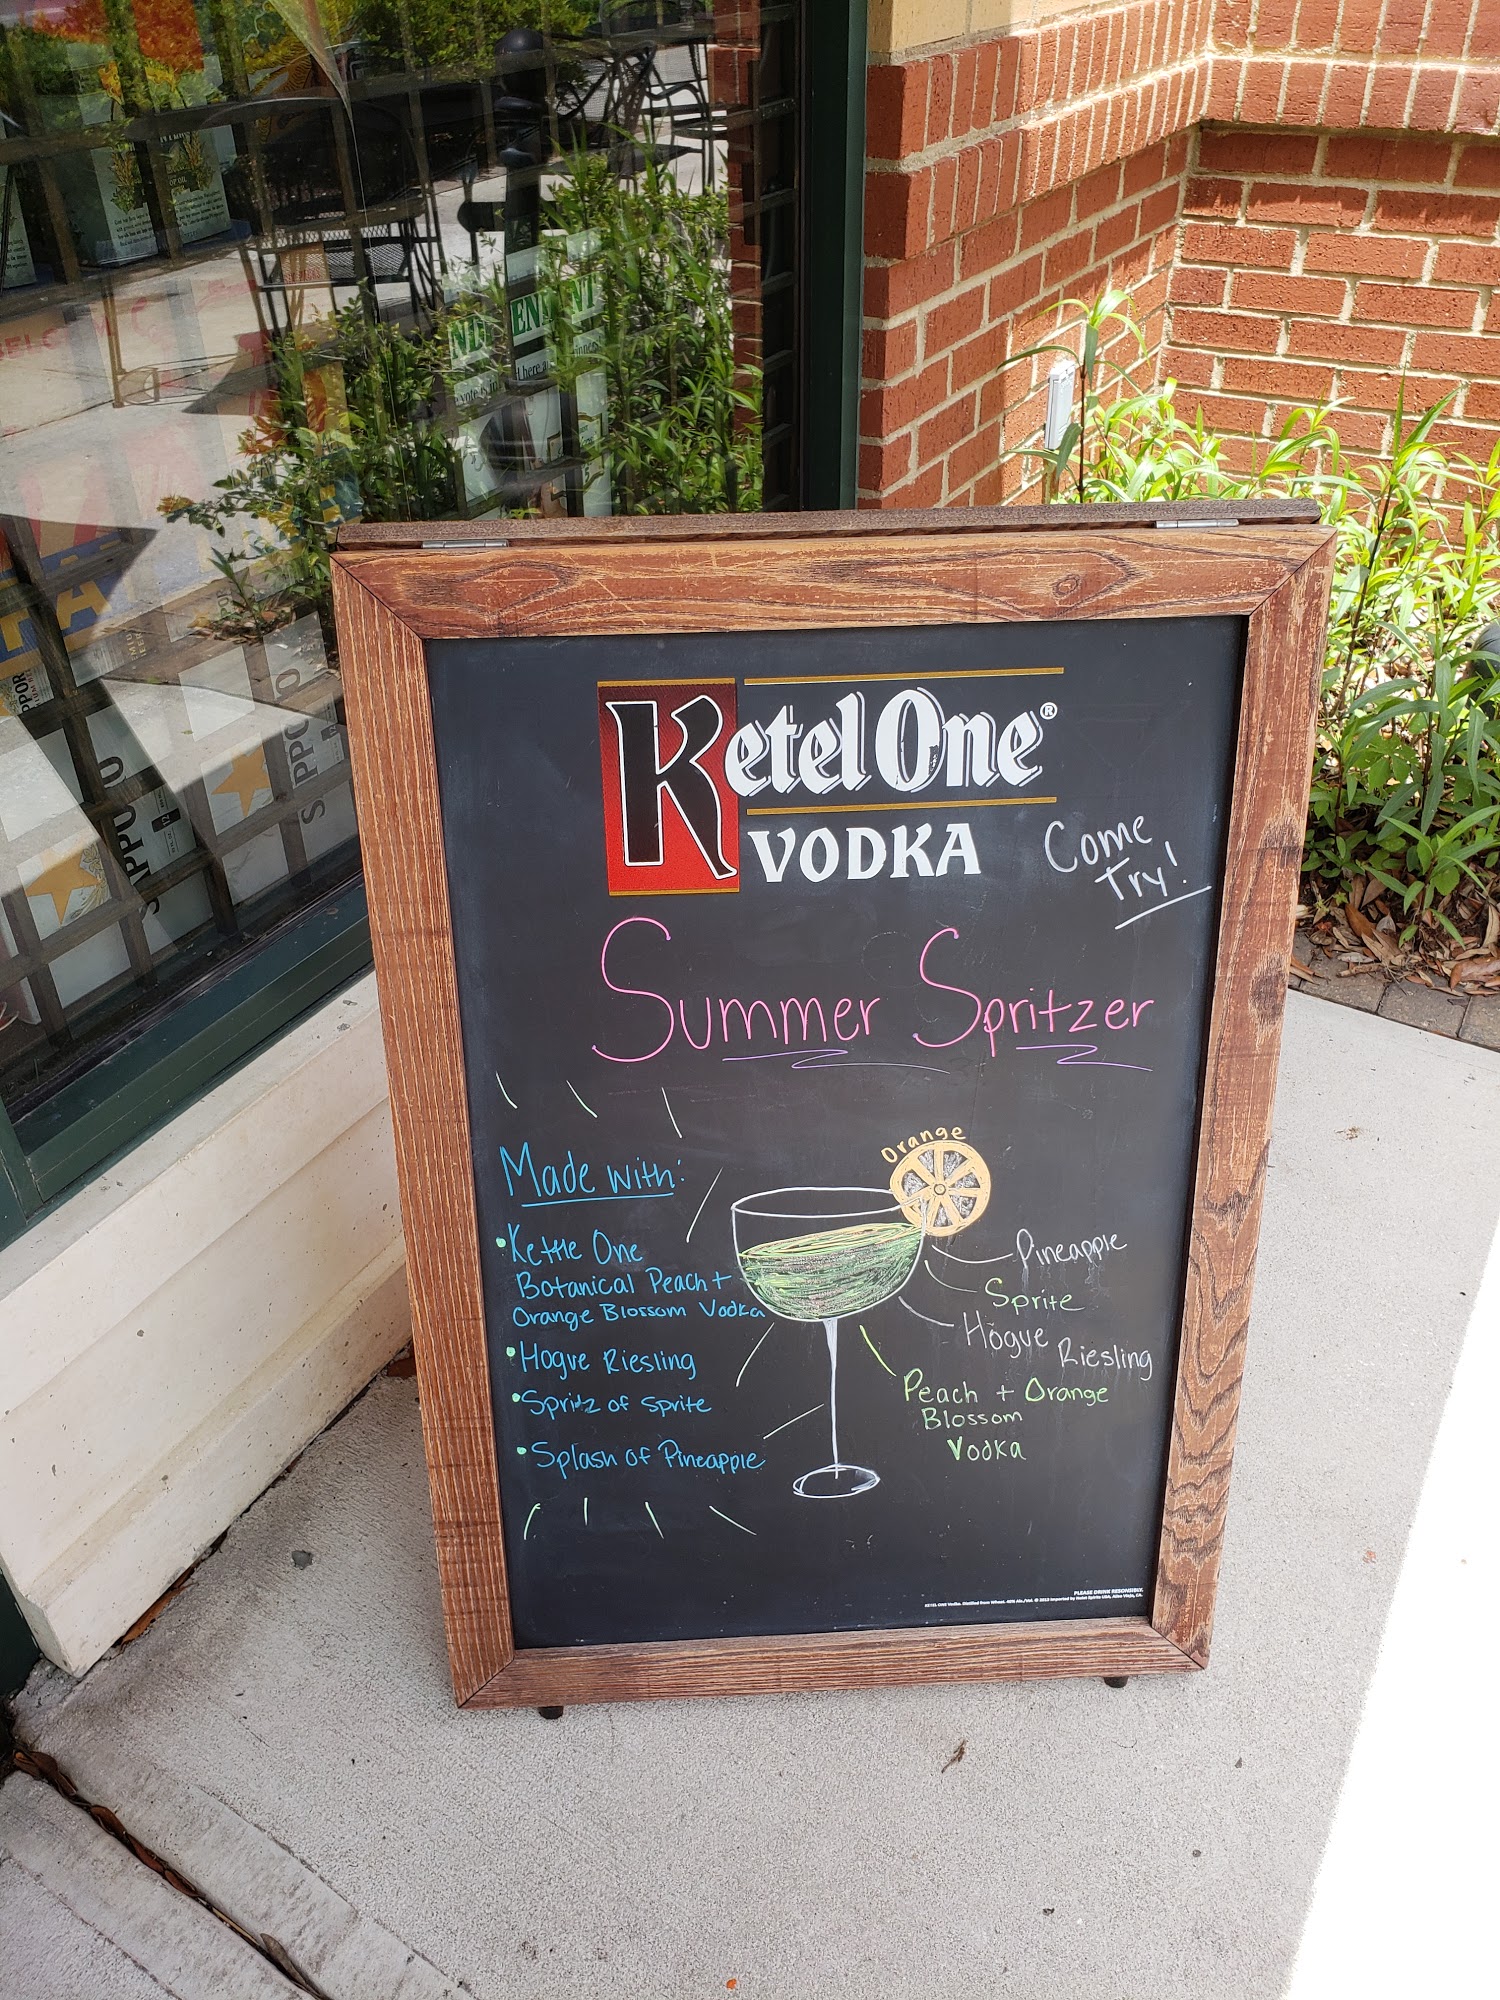 Ketel One®
VODKA
Come
Try!
Summer Spritzer
Made with:
• Kettle One
Botanical Peach +
Orange Blossom Vodka
• Hogue Riesling
• Spritz of Sprite
• Splash of Pineapple
Orange
Pineapple
Sprite
Hogue
Riesling
Peach + Orange
Blossom
Vodka
PLEASE DRINK RESONSIBLY.